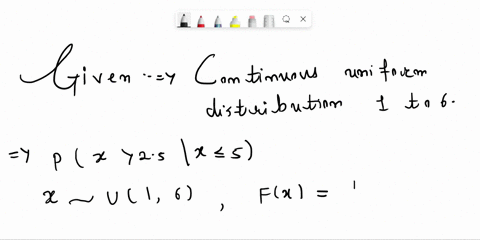 Given => Continuous uniform
distribution 1 to 6.
=> P(x > 2.5 \ x ≤ 5)
x ~ U(1, 6) , F(x) = 1